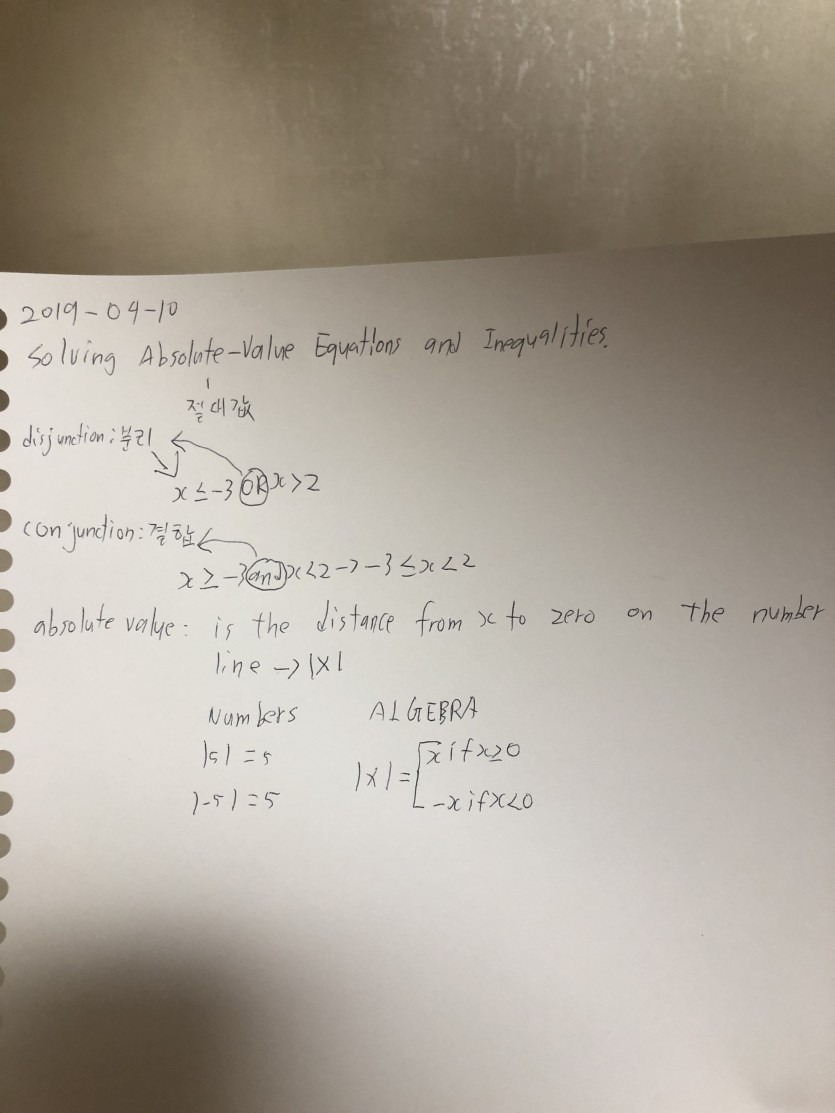 2019-04-10
Solving Absolute-Value Equations and Inequalities.
절대값
disjunction: 분리
x ≤ -3 OR x > 2
conjunction: 결합
x ≥ -3 and x < 2 -> -3 ≤ x < 2
absolute value: is the distance from x to zero on the number
line -> |x|
Numbers ALGEBRA
|5| = 5 |x| = [ x if x ≥ 0
|-5| = 5 -x if x < 0